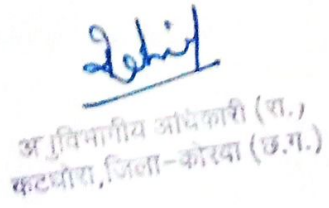 अनुविभागीय अधिकारी (रा.)
कटघोरा, जिला-कोरबा (छ.ग.)